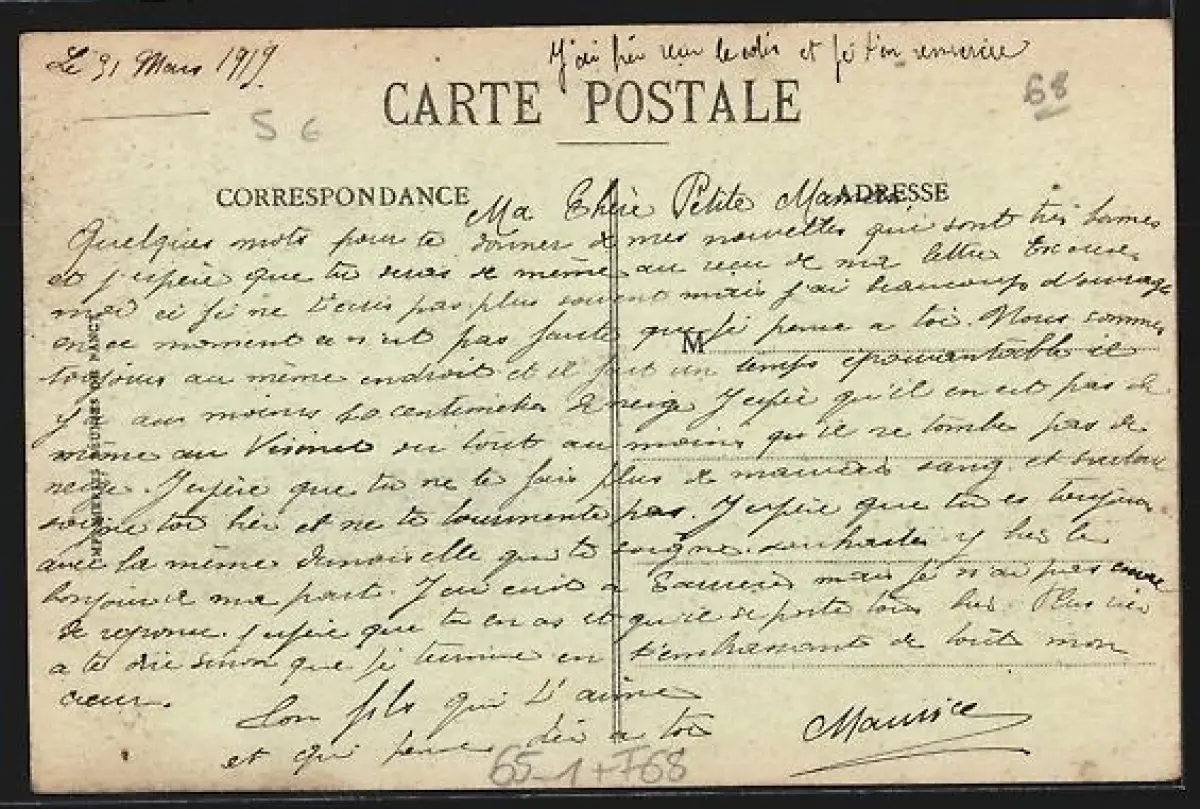 Le 31 Mars 1919
J'ai bien reçu le colis et je t'en remercie
CARTE POSTALE
S 6
68
CORRESPONDANCE
ADRESSE
Ma Chère Petite Maman
Quelques mots pour te donner de mes nouvelles qui sont très bonnes
et j'espère que tu seras de même au reçu de ma lettre Excuse
moi si je ne t'écris pas plus souvent mais j'ai beaucoup d'ouvrage
en ce moment ce n'est pas faute que je pense a toi. Nous sommes
M
toujours au même endroit et il fait un temps épouvantable il
y a au moins 20 centimètres de neige J'espère qu'il en est pas de
même au Vésinet ou tout au moins qu'il ne tombe pas de
neige. J'espère que tu ne te fais plus de mauvais sang et surtout
soigne toi bien et ne te tourmente pas. J'espère que tu es toujours
avec la même demoiselle que te soigne. souhaites y bien le
bonjour de ma part. J'ai écrit a mais je n'ai pas encore
de reponse. J'espère que tu en as et qu'il se porte bien. Plus rien
a te dire sinon que je termine en t'embrassant de tout mon
cœur.
Ton fils qui t'aime
et qui pense a toi
Maurice
IMPRIMERIES REUNIES DE NANCY
65-1+F68